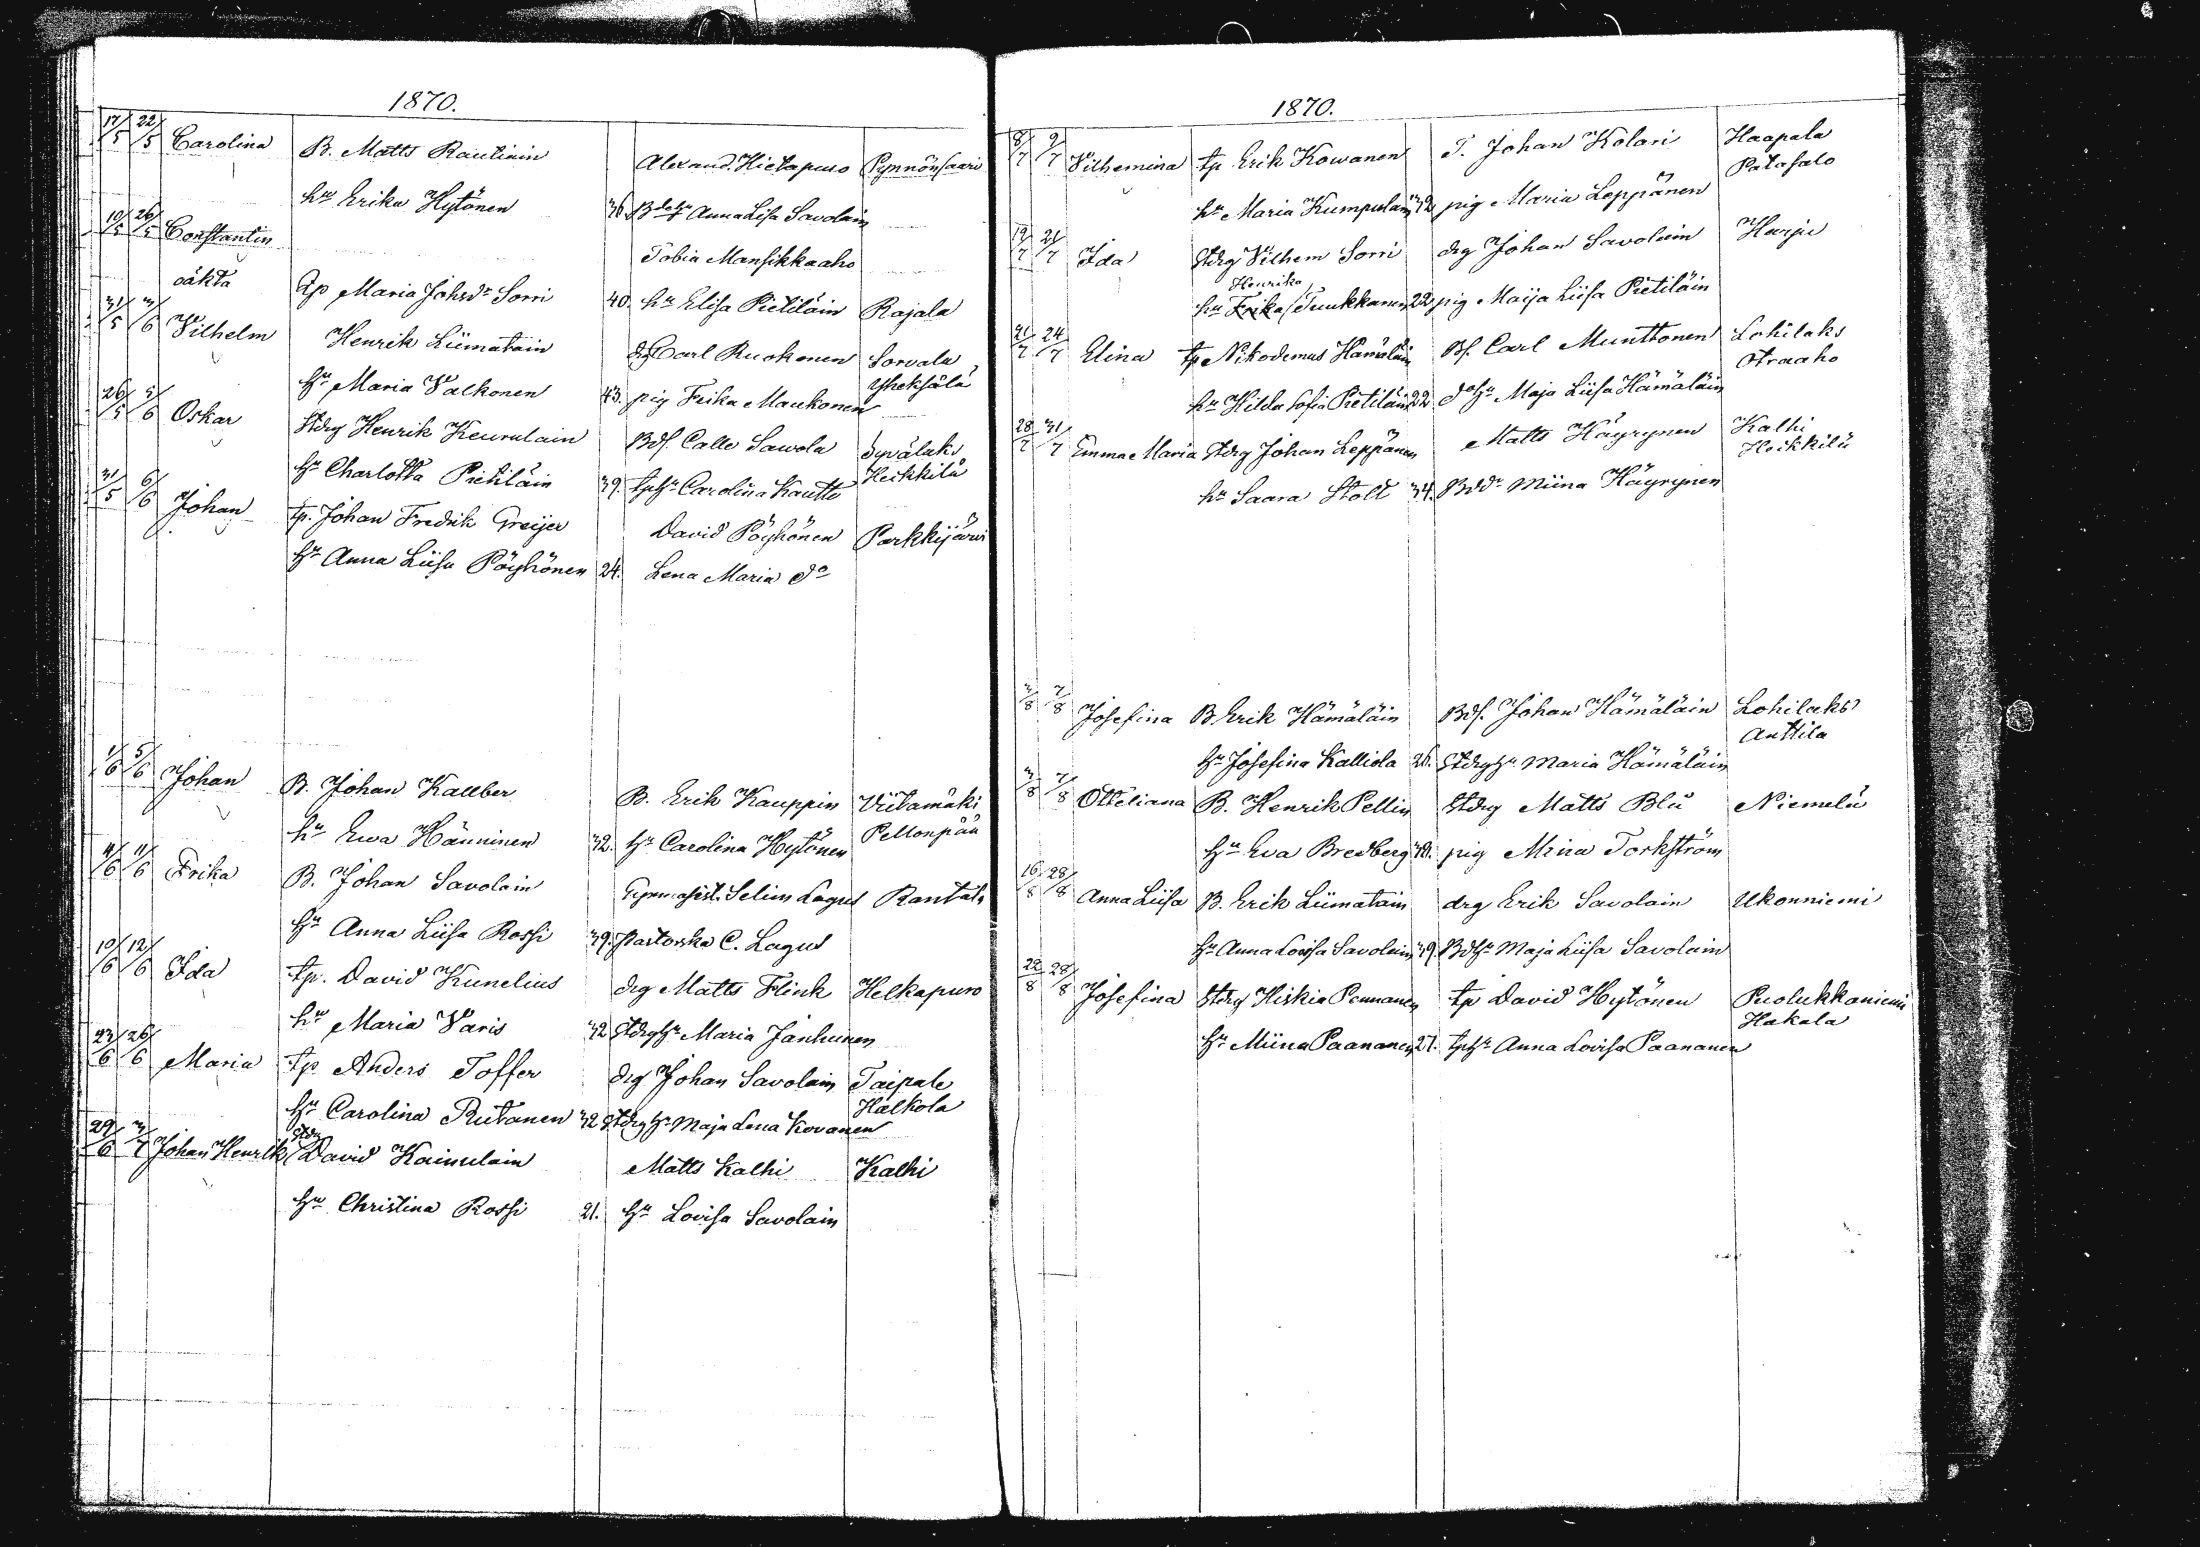 1870.
17/5 22/5 Carolina B. Matts Rautiain Alexand. Hietapuro Pynnönsaari
hu Erika Hytönen 36. Anna Lisa Savolain
19/5 26/5 Constantin Tobia Mansikkaaho
oäkta Maria Johsdr Sorri 40. hu Elisa Pietiläin Rajala
31/5 3/6 Vilhelm Henrik Liimatain Carl Ruokonen Sorvala
hu Maria Valkonen 43. pig Frika Maukonen Yheksälä
26/5 5/6 Oskar Stdrg Henrik Keurulain Bds. Calle Sawola Syvälaks
hu Charlotta Pietiläin 39. tphu Carolina Kautto Heikkilä
31/5 6/6 Johan tp. Johan Fredrik Greijer David Pöyhönen Parkkijärvi
hu Anna Liisa Pöyhönen 24. Lena Maria do
1/6 5/6 Johan B. Johan Kallber B. Erik Kauppin Viitamäki
hu Ewa Hänninen 32. hu Carolina Hytönen Pellonpää
4/6 11/6 Frika B. Johan Savolain Gymnasist. Selim Lagus Rantala
hu Anna Liisa Rossi 39. Pastorska C. Lagus
10/6 12/6 Ida tp. David Kunelius drg Matts Flink Helkapuro
hu Maria Varis 32 Stdrghu Maria Janhunen
23/6 26/6 Maria tp Anders Toffer drg Johan Savolain Taipale
hu Carolina Rutanen 32 Stdrg hu Maja Lena Kovanen Halkola
29/6 3/7 Johan Henrik Stdrg David Kainulain Matts Kalhi Kalhi
hu Christina Rossi 21. hu Lovisa Savolain
1870.
8/7 9/7 Vilhemina tp Erik Kowanen T. Johan Kolari Haapala
hu Maria Kumpulain 32 pig Maria Leppänen Patasalo
19/7 21/7 Ida Stdrg Vilhem Sorri drg Johan Savolain Harju
Henrika
hu Frika Tuukkanen 22 pig Maija Liisa Pietiläin
21/7 24/7 Elina tp Nikodemus Hämäläin Bs. Carl Munttonen Lohilaks
hu Hilda Sofia Pietiläin 22. dohu Maja Liisa Hämäläin Ahoaho
28/7 31/7 Emma Maria Stdrg Johan Leppänen Matts Häyrynen Kalhi
hu Saara Stolt 34. Bddr Miina Häyrynen Heikkilä
3/8 7/8 Josefina B. Erik Hämäläin Bds. Johan Hämäläin Lohilaks
hu Josefina Kalliola 26. Stdrghu Maria Hämäläin Anttila
3/8 7/8 Otteliana B. Henrik Pellin Stdrg Matts Blå Niemelä
hu Eva Bredberg pig Mina Torkström
16/8 28/8 Anna Liisa B. Erik Liimatain drg Erik Savolain Ukonniemi
hu Anna Lovisa Savolain 39. Bdhu Maja Liisa Savolain
22/8 28/8 Josefina Stdrg Hiskia Pennanen tp David Hytönen Puolukkaniemi
hu Miina Paananen 27. tphu Anna Lovisa Paananen Hakala